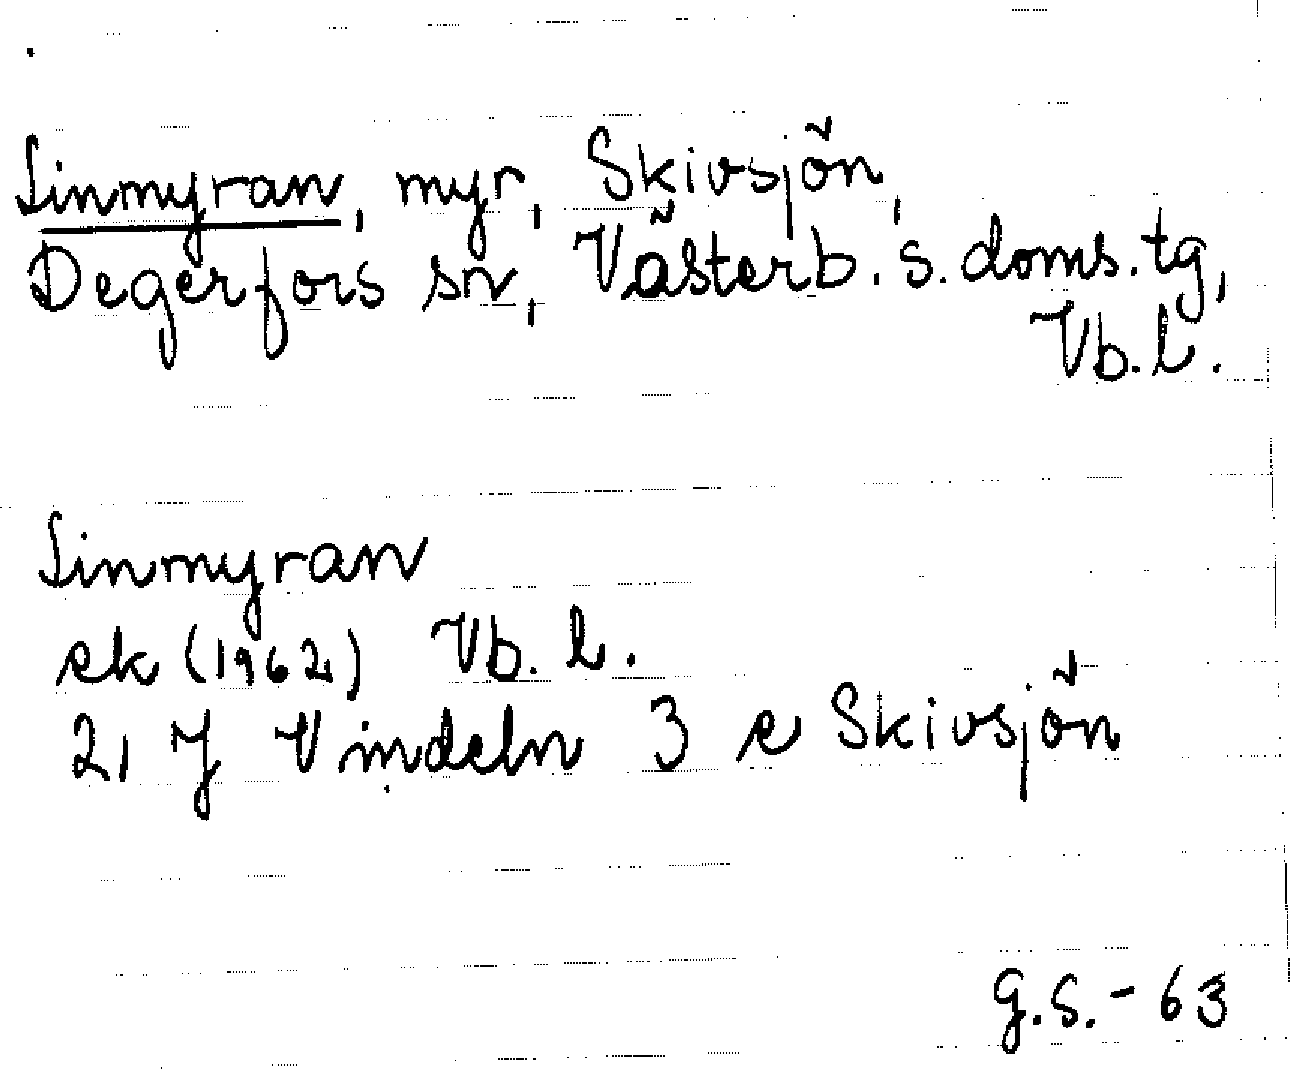 Linmyran, myr, Skivsjön,
Degerfors sn, Västerb. s. doms. tg,
Vb. l.
Linmyran
ek (1962) Vb. l.
21 J Vindeln 3 e Skivsjön
G.S. - 63